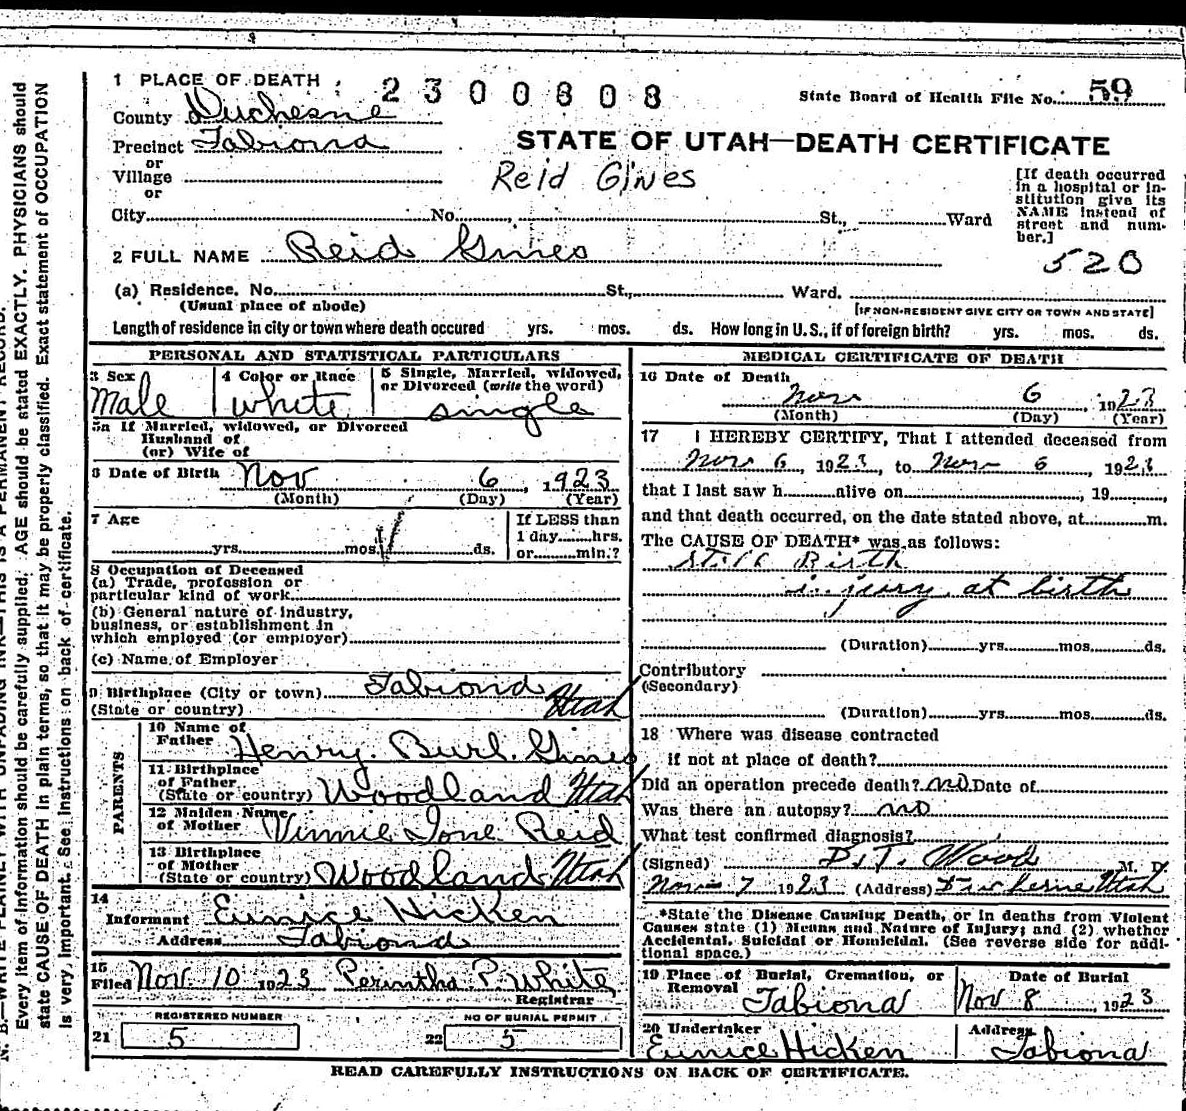 1 PLACE OF DEATH
2300808
State Board of Health File No. 59
County Duchesne
Precinct Tabiona
STATE OF UTAH—DEATH CERTIFICATE
or
Village
Reid Gines
or
City No. St., Ward
[If death occurred in a hospital or institution give its NAME instead of street and number.]
2 FULL NAME Reid Gines
520
(a) Residence. No. St., Ward.
(Usual place of abode)
[IF NON-RESIDENT GIVE CITY OR TOWN AND STATE]
Length of residence in city or town where death occured yrs. mos. ds. How long in U. S., if of foreign birth? yrs. mos. ds.
PERSONAL AND STATISTICAL PARTICULARS
3 Sex
Male
4 Color or Race
white
5 Single, Married, widowed, or Divorced (write the word)
single
5a If Married, widowed, or Divorced
Husband of
(or) Wife of
6 Date of Birth Nov 6, 1923
(Month) (Day) (Year)
7 Age
yrs. mos. ds.
If LESS than
1 day hrs.
or min.?
8 Occupation of Deceased
(a) Trade, profession or
particular kind of work
(b) General nature of industry,
business, or establishment in
which employed (or employer)
(c) Name of Employer
9 Birthplace (City or town) Tabiona
(State or country) Utah
PARENTS
10 Name of
Father Henry Burl Gines
11 Birthplace
of Father
(State or country) Woodland Utah
12 Maiden Name
of Mother Vinnie Ione Reid
13 Birthplace
of Mother
(State or country) Woodland Utah
14
Informant Eunice Hicken
Address Tabiona
15
Filed Nov 10 1923 Perintha P. White
Registrar
REGISTERED NUMBER
21 5
NO OF BURIAL PERMIT
22 5
MEDICAL CERTIFICATE OF DEATH
16 Date of Death
Nov 6, 1923
(Month) (Day) (Year)
17 I HEREBY CERTIFY, That I attended deceased from
Nov 6, 1923, to Nov 6, 1923
that I last saw h alive on , 19 ,
and that death occurred, on the date stated above, at m.
The CAUSE OF DEATH* was as follows:
Still Birth
injury at birth
(Duration) yrs. mos. ds.
Contributory
(Secondary)
(Duration) yrs. mos. ds.
18 Where was disease contracted
if not at place of death?
Did an operation precede death? no Date of
Was there an autopsy? no
What test confirmed diagnosis?
(Signed) D. T. Wood M. D.
Nov 7 1923 (Address) Duchesne Utah
*State the Disease Causing Death, or in deaths from Violent
Causes state (1) Means and Nature of Injury; and (2) whether
Accidental, Suicidal or Homicidal. (See reverse side for addi-
tional space.)
19 Place of Burial, Cremation, or
Removal Tabiona
Date of Burial
Nov 8, 1923
20 Undertaker
Eunice Hicken
Address
Tabiona
READ CAREFULLY INSTRUCTIONS ON BACK OF CERTIFICATE.
N. B.—WRITE PLAINLY WITH UNFADING INK—THIS IS A PERMANENT RECORD.
Every item of information should be carefully supplied. AGE should be stated EXACTLY. PHYSICIANS should
state CAUSE OF DEATH in plain terms, so that it may be properly classified. Exact statement of OCCUPATION
is very important. See instructions on back of certificate.